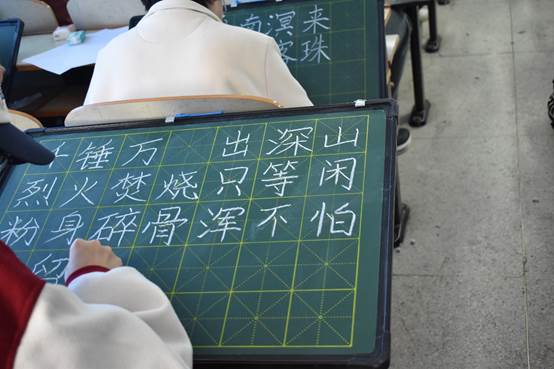 南溟来
客珠
千锤万 出深山
烈火焚烧只等闲
粉身碎骨浑不怕
留